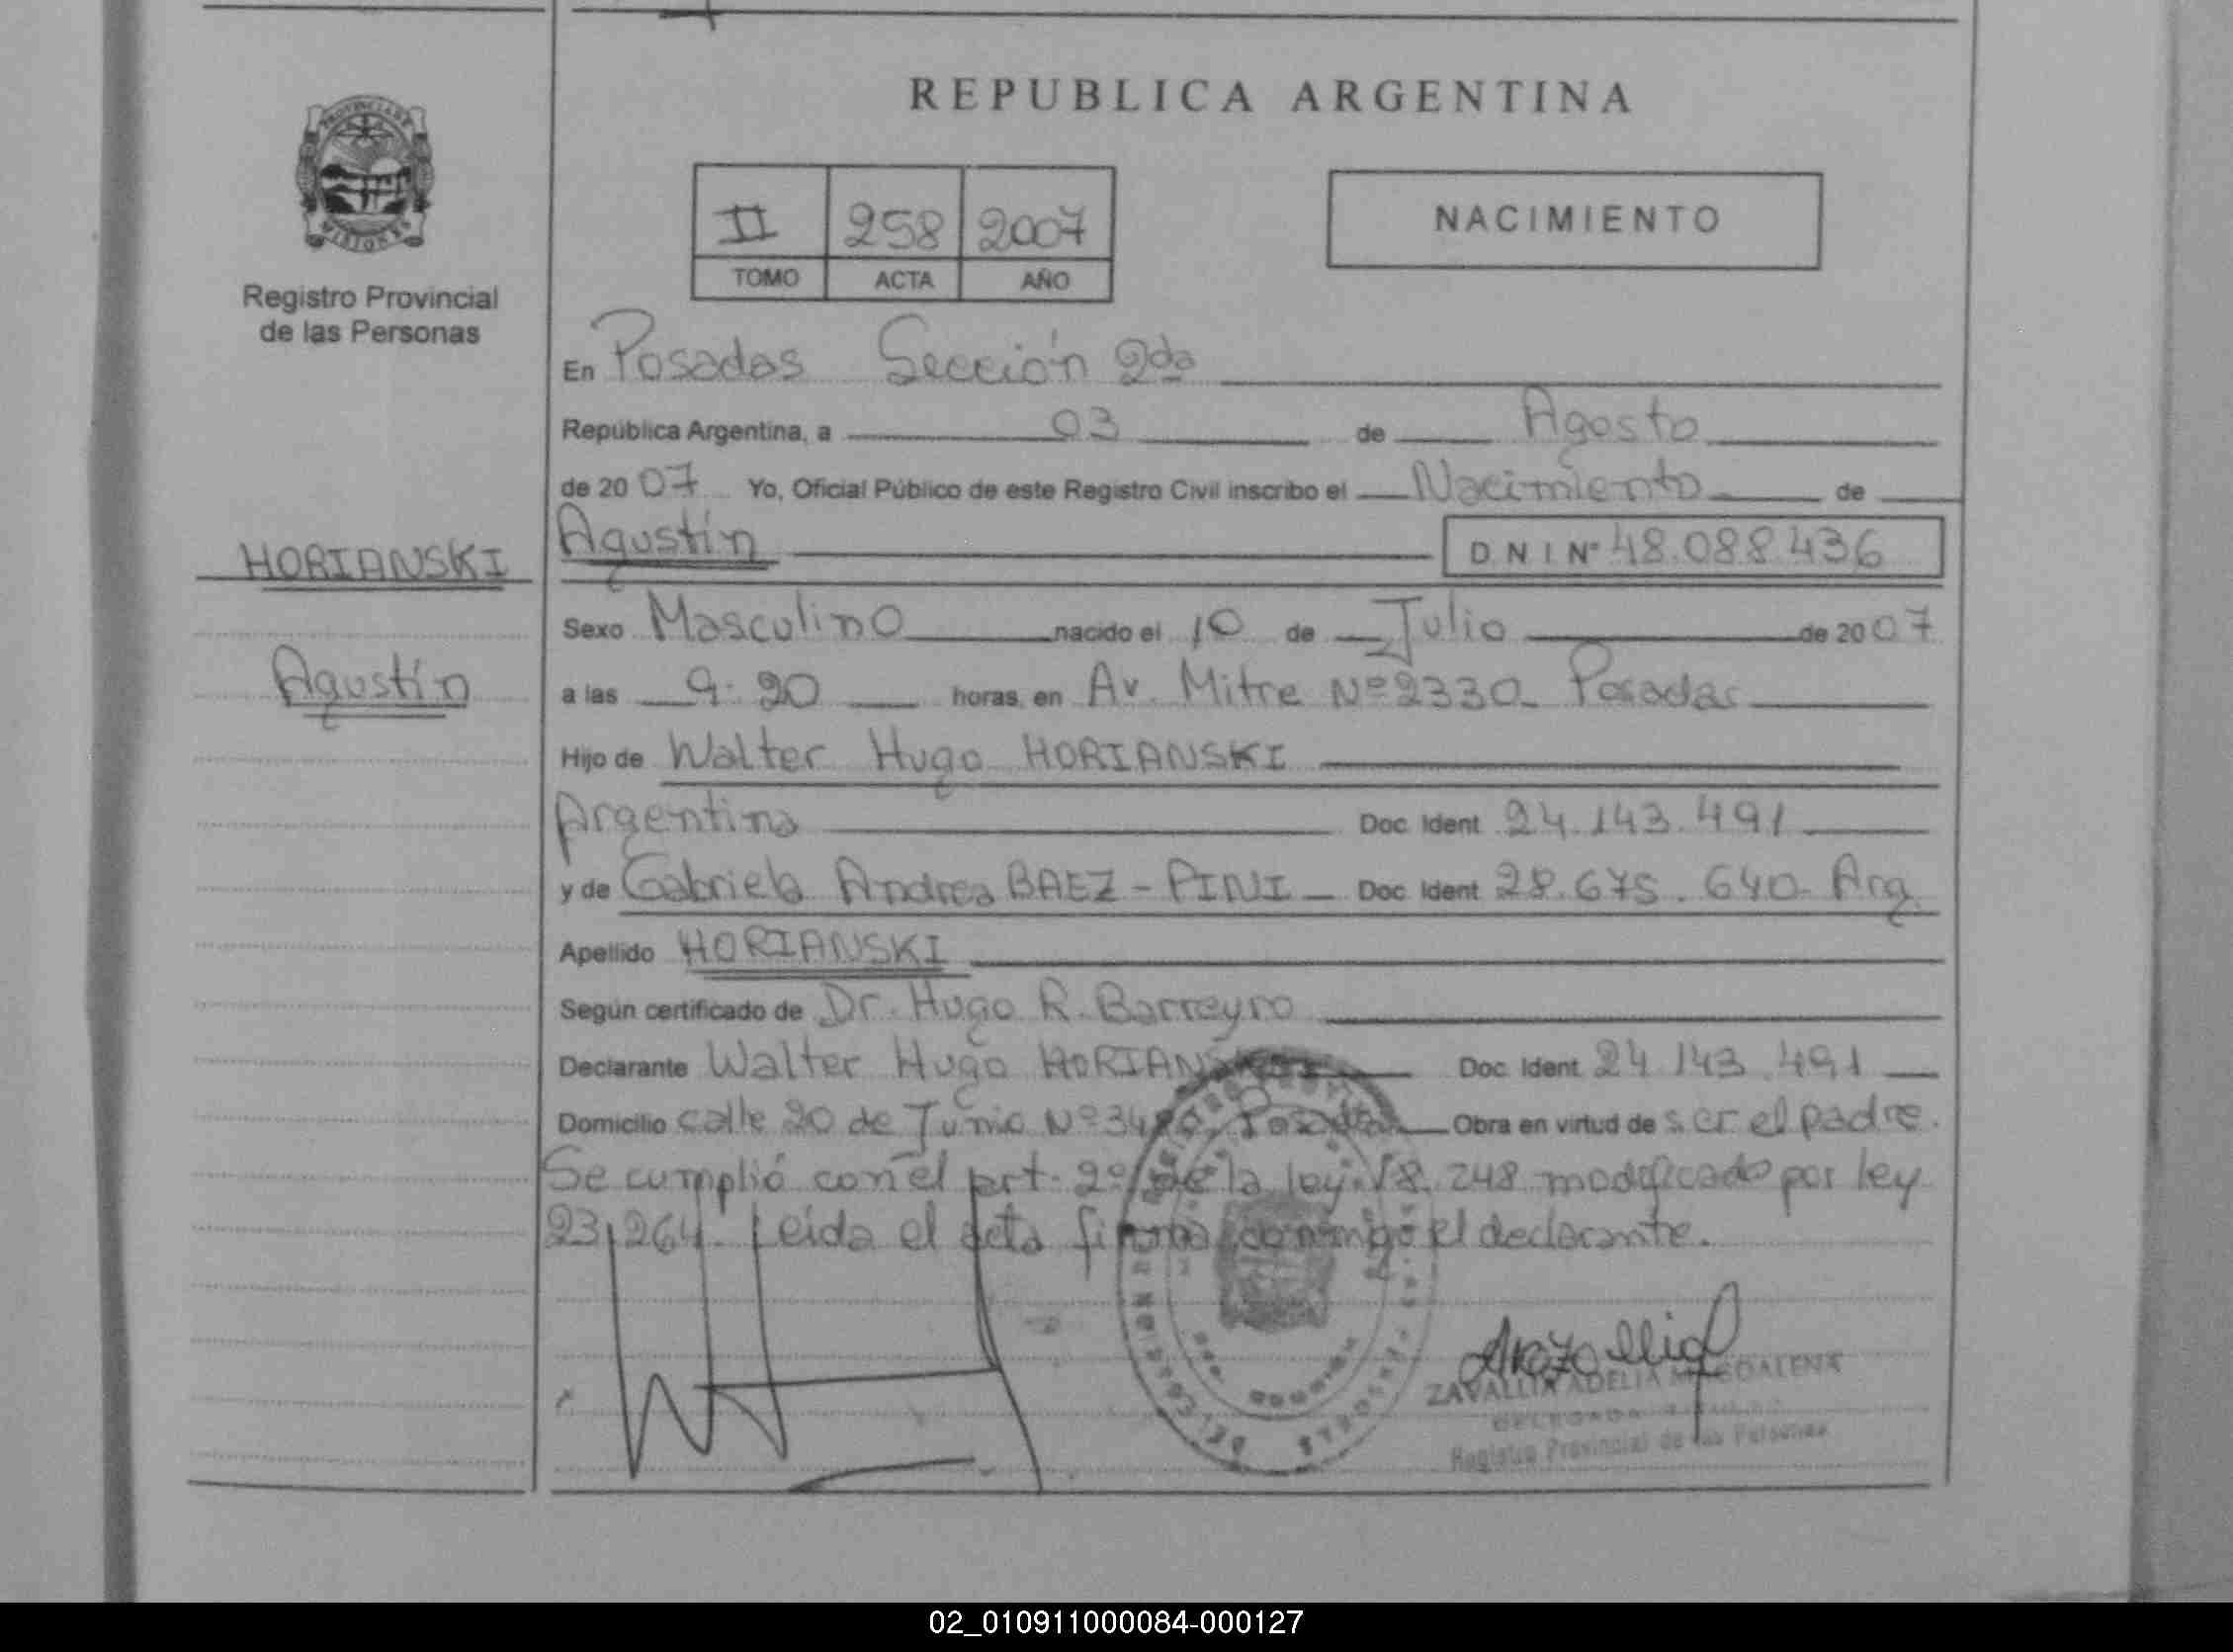 REPUBLICA ARGENTINA
PROVINCIA DE
MISIONES
Registro Provincial
de las Personas
II 258 2007
TOMO ACTA AÑO
NACIMIENTO
En Posadas Sección 2da
República Argentina, a 03 de Agosto
de 20 07 Yo, Oficial Público de este Registro Civil inscribo el Nacimiento de
HORIANSKI
Agustín
Agustín D N I Nº 48.088.436
Sexo Masculino nacido el 10 de Julio de 20 07
a las 9:20 horas, en Av. Mitre Nº 2330 - Posadas
Hijo de Walter Hugo HORIANSKI
Argentina Doc. Ident. 24.143.491
y de Gabriela Andrea BAEZ - PINI - Doc. Ident. 28.675.640 - Arg.
Apellido HORIANSKI
Según certificado de Dr. Hugo R. Barreyro
Declarante Walter Hugo HORIANSKI Doc. Ident. 24.143.491
Domicilio calle 20 de Junio Nº Posadas Obra en virtud de ser el padre.
Se cumplió con el art. 2º de la ley 18.248 modificado por ley
23.264. Leida el acta firma conmigo el declarante.
ZAVALLIA ADELIA MAGDALENA
Registro Provincial de las Personas
02_010911000084-000127